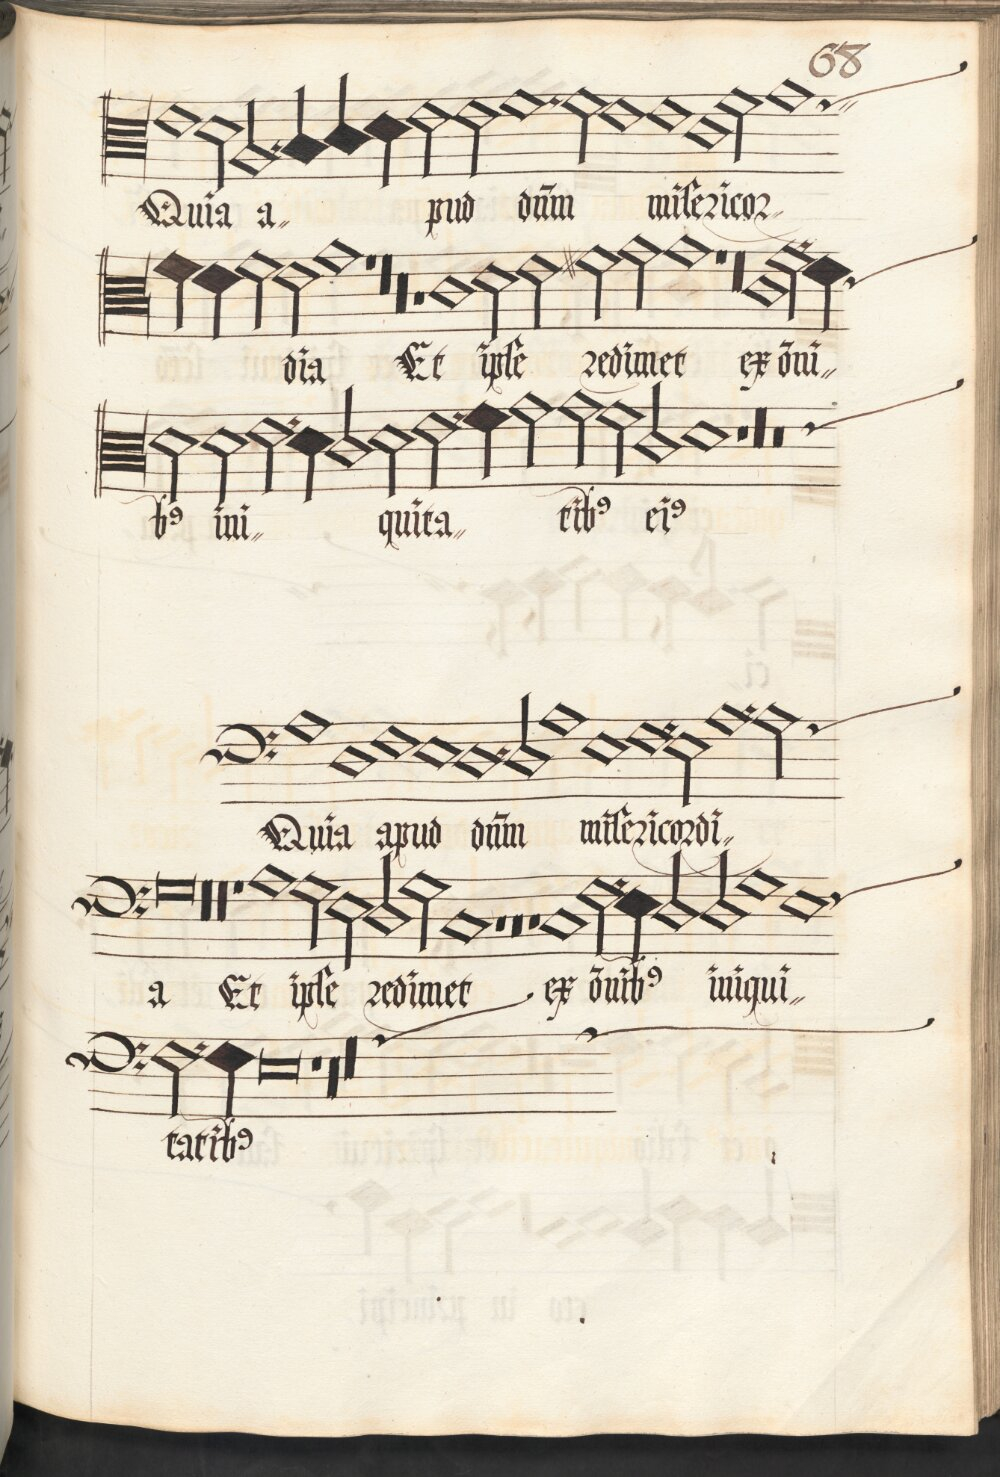 68
Quia a„ pud dñm misericor„
dia Et ip̃se redimet ex om̃i„
bꝰ ini„ quita„ tibꝰ eiꝰ
Quia apud dñm misericordi„
a Et ip̃se redimet ex om̃ibꝰ iniqui„
tatibꝰ